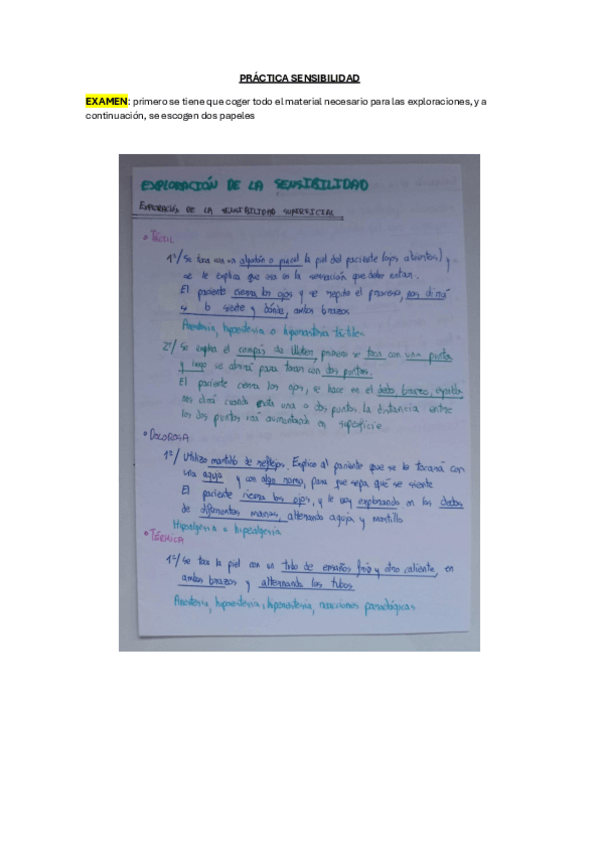 PRÁCTICA SENSIBILIDAD
EXAMEN: primero se tiene que coger todo el material necesario para las exploraciones, y a
continuación, se escogen dos papeles
EXPLORACIÓN DE LA SENSIBILIDAD
EXPLORACIÓN DE LA SENSIBILIDAD SUPERFICIAL
• TÁCTIL
1º/ Se toca con un algodón o pincel la piel del paciente (ojos abiertos) y
se le explica que esa es la sensación que debe notar.
El paciente cierra los ojos y se repite el proceso, nos dirá
si lo siente y dónde, ambos brazos
Anestesia, hipoestesia o hiperestesia táctiles
2º/ Se explica el compás de Weber, primero se toca con una punta
y luego se abrirá para tocar con dos puntos.
El paciente cierra los ojos, se hace en el dedo, brazo, espalda
nos dirá cuando nota una o dos puntos, la distancia entre
los dos puntos irá aumentando en superficie.
• DOLOROSA
1º/ Utilizo martillo de reflejos. Explico al paciente que se le tocará con
una aguja y con algo romo, para que sepa qué se siente
El paciente cierra los ojos, y le voy explorando en los dedos
de diferentes manos, alternando aguja y martillo
Hipoalgesia o hiperalgesia
• TÉRMICA
1º/ Se toca la piel con un tubo de ensayos frío y otro caliente, en
ambos brazos y alternando los tubos
Anestesia, hipoestesia, hiperestesia, reacciones paradógicas